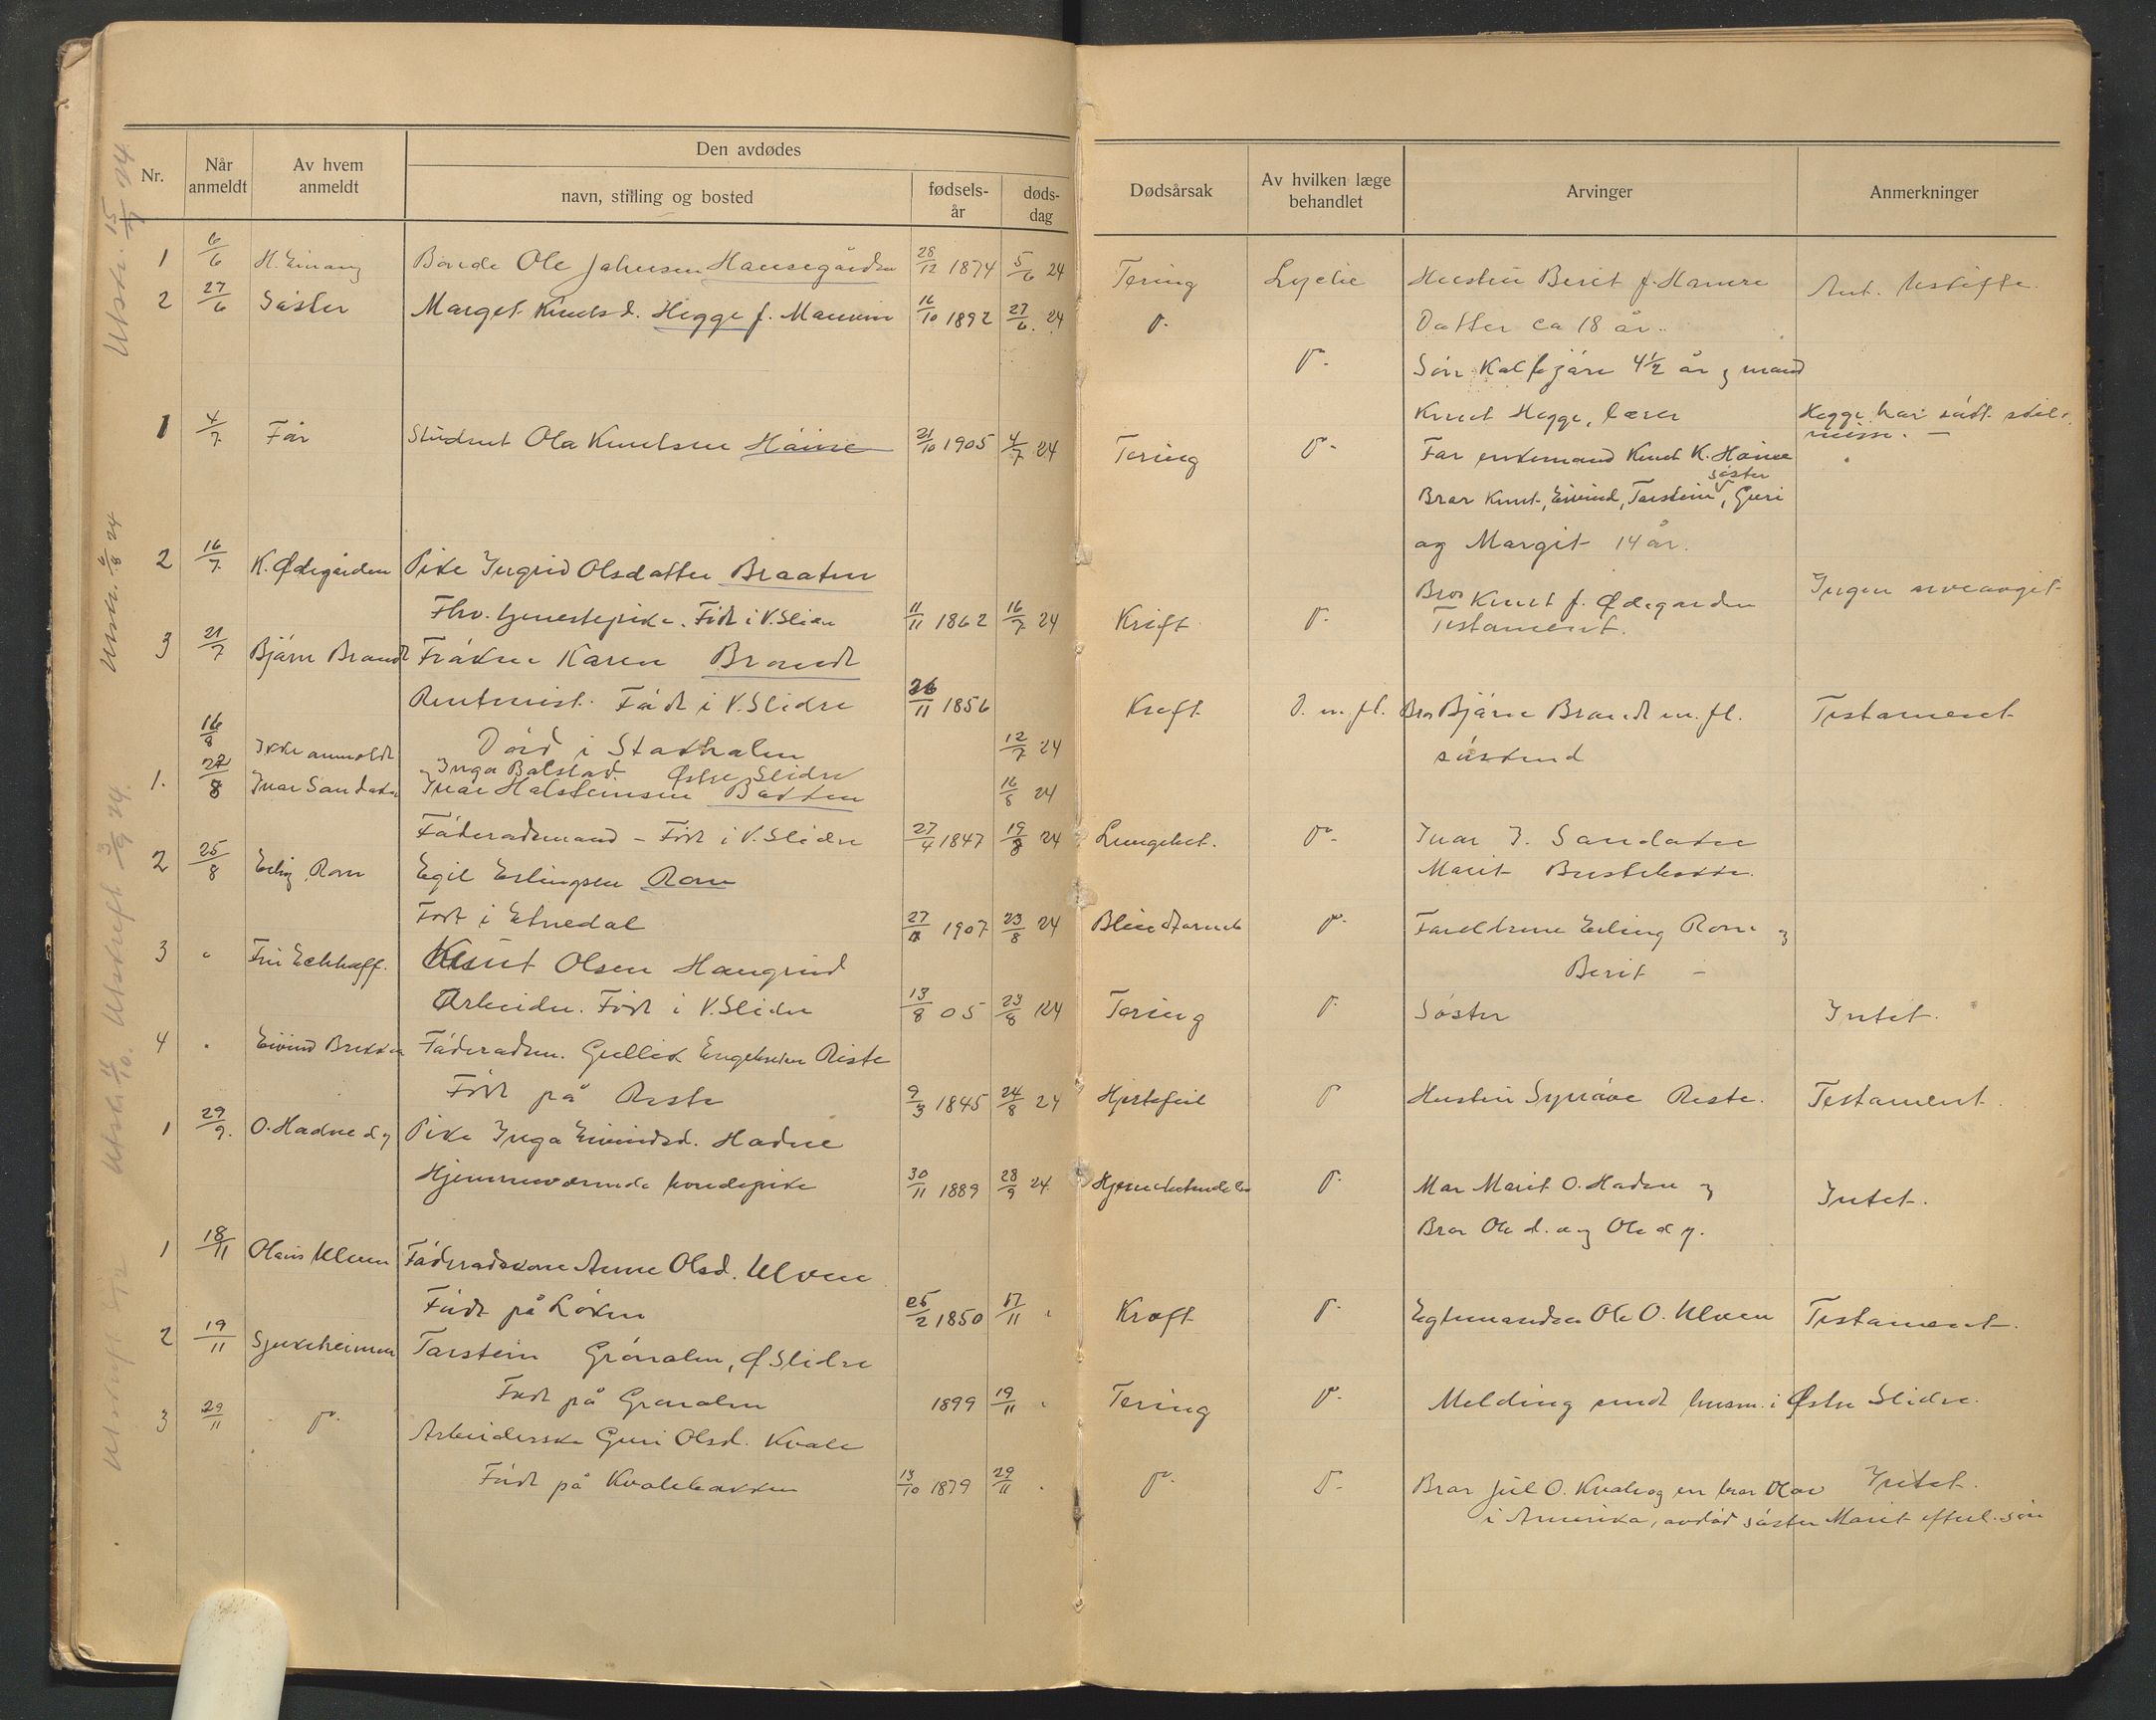 Den avdødes
Nr. Når anmeldt Av hvem anmeldt navn, stilling og bosted fødsels-år døds-dag Dødsårsak Av hvilken læge behandlet Arvinger Anmerkninger
Utskr. 15/7 24.
1 6/6 H. Einang Bonde Ole Johnsen Hausegården 28/12 1874 5/6 24 Tering Hustru Berit f. Ant. Uskifte.
2 27/6 Søster Marget Knutsd. Hegge f. 16/10 1892 27/6 24 D. Datter ca 18 år.
D. Søn 4½ år og mand
Knut Hegge, lærer Hegge har sådt skil-
misse. —
1 4/7 Far Student Ola Knutsen Höine 21/10 1905 4/7 24 Tering D. Far enkemand Knut K. Höine
søster
Bror Knut, Eivind, Torstein, Guri
og Margit 14 år.
Utskr. 6/8 24
2 16/7 K. Ødegården Pike Ingrid Olsdatter Braaten
Fhv. tjenestepike. Født i V. Slidre 11/11 1862 16/7 24 Kræft D. Bror Knut f. Ødegarden Ingen
Testament.
3 21/7 Bjørn Brandt Frøken Karen Brandt
Rentenist. Født i V. Slidre 26/11 1856 Kræft D. m. fl. Bror Bjørn Brandt m. fl. Testament
Død i Stavhalen 12/7 24 søskend
16/8 Ikke anmeldt Inga Bolstad Østre Slidre 16/8 24
1. 22/8 Ivar Sandaker Ivar Halsteinsen Bakken
Føderadsmand - Født i V. Slidre 27/4 1847 19/8 24 Lungebet. D. Ivar I. Sandaker
Marit
Utskrift 3/9 24.
2 25/8 Erling Rom Egil Erlingsen Rom
Født i Etnedal 27/ 1907 23/8 24 Blindtarmb D. Foreldrene Erling Rom og
Berit —
3 " Fru Eckhoff. Knut Olsen Haugrud
Arbeider. Født i V. Slidre 13/8 05 23/8 24 Tering D. Søster Intet.
4 " Eivind Brekken Føderadsm. Gullik Engebretsen Riste
Født på Riste 9/3 1845 24/8 24 Hjertefeil D Hustru Synnøve Riste. Testament
Utskr. 11/10.
1 29/9. O. Hadne d y Pike Inga Eivindsd. Hadne
Hjemmeværende bondepike 30/11 1889 28/9 24. D. Mor Marit O. Hadne og Intet.
Bror Ole d. e og Ole d y.
1 18/11 Olaus Ulven Føderadskone Anne Olsd. Ulven
Født på Löken 25/2 1850 17/11 " Kræft D. Egtemanden Ole O. Ulven Testament.
2 19/11 Sjukeheimen Torstein Grönolen, Ø. Slidre
Født på Grönolen 1899 19/11 " Tering D. Melding sendt lensm. i Østre Slidre.
3 29/11 D. Arbeiderske Guri Olsd. Kvale
Født på Kvalebakken 13/10 1879 29/11 " D. D. Bror Jul O. Kvale og en bror Olav Intet.
i Amerika, avdød søster Marit efterl. søn
Utskrift